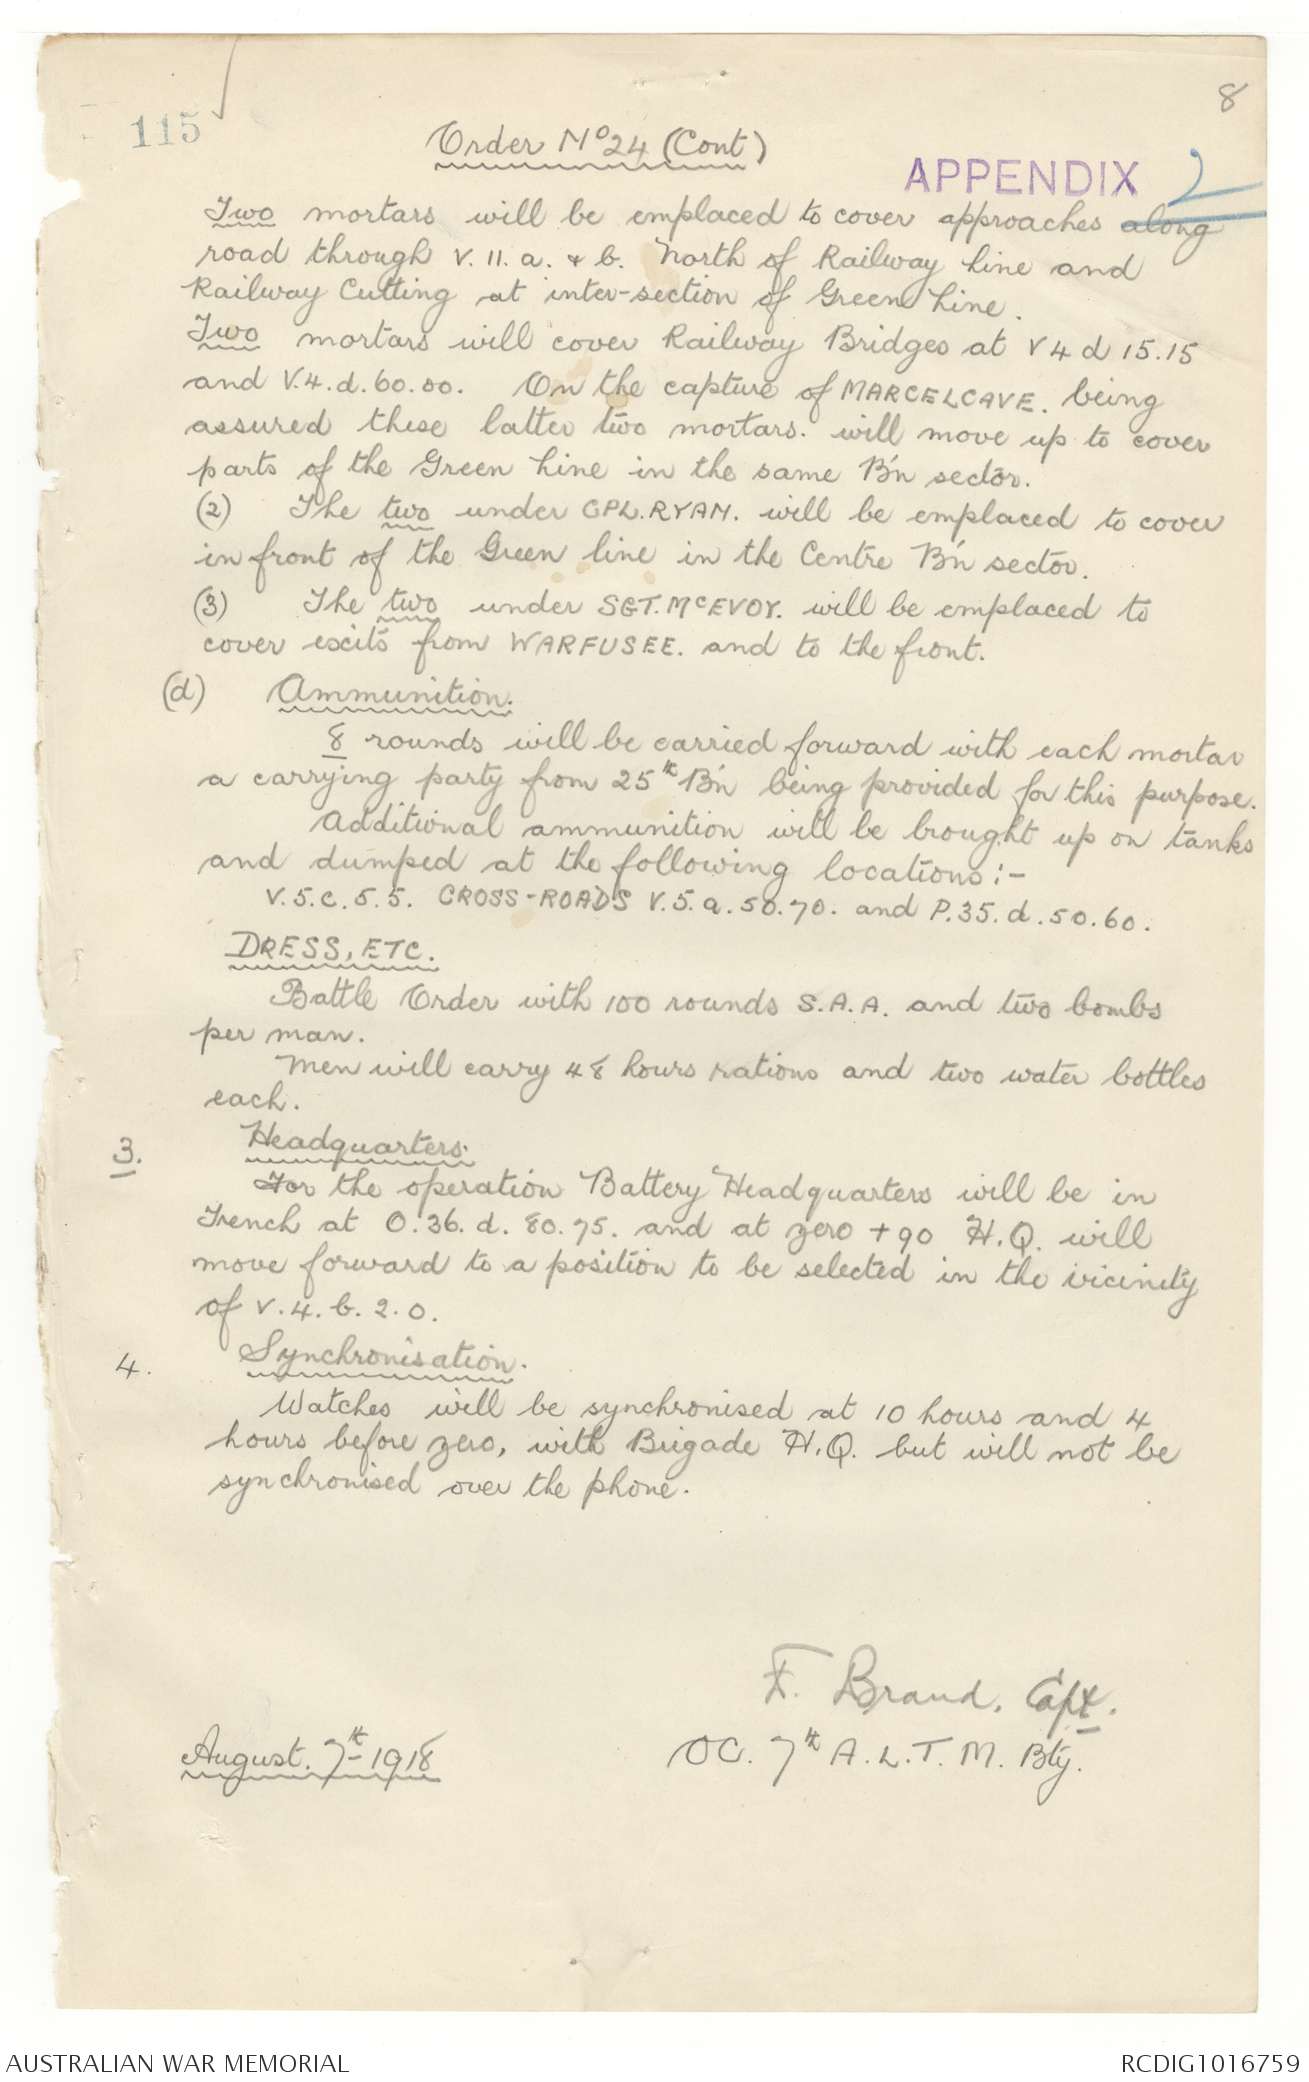 8
115
Order No 24 (Cont)
APPENDIX 2
Two mortars will be emplaced to cover approaches along
road through V. 11. a. & b. North of Railway line and
Railway Cutting at inter-section of Green Line.
Two mortars will cover Railway Bridges at V 4 d 15.15
and V.4.d.60.00. On the capture of MARCELCAVE. being
assured these latter two mortars. will move up to cover
parts of the Green Line in the same B'n sector.
(2) The two under CPL. RYAN. will be emplaced to cover
in front of the Green line in the Centre B'n sector.
(3) The two under SGT. McEVOY. will be emplaced to
cover exits from WARFUSEE. and to the front.
(d) Ammunition.
8 rounds will be carried forward with each mortar
a carrying party from 25th B'n being provided for this purpose.
Additional ammunition will be brought up on tanks
and dumped at the following locations:-
V.5.c.5.5. CROSS-ROADS V.5.a.50.70. and P.35.d.50.60.
DRESS, ETC.
Battle Order with 100 rounds S.A.A. and two bombs
per man.
Men will carry 48 hours rations and two water bottles
each.
3. Headquarters.
For the operation Battery Headquarters will be in
Trench at O.36.d.80.75. and at zero + 90 H.Q. will
move forward to a position to be selected in the vicinity
of V.4.b.2.0.
4. Synchronisation.
Watches will be synchronised at 10 hours and 4
hours before zero, with Brigade H.Q. but will not be
synchronised over the phone.
F. Braund, Capt.
August. 7th 1918 OC. 7th A.L.T.M. Bty.
AUSTRALIAN WAR MEMORIAL RCDIG1016759